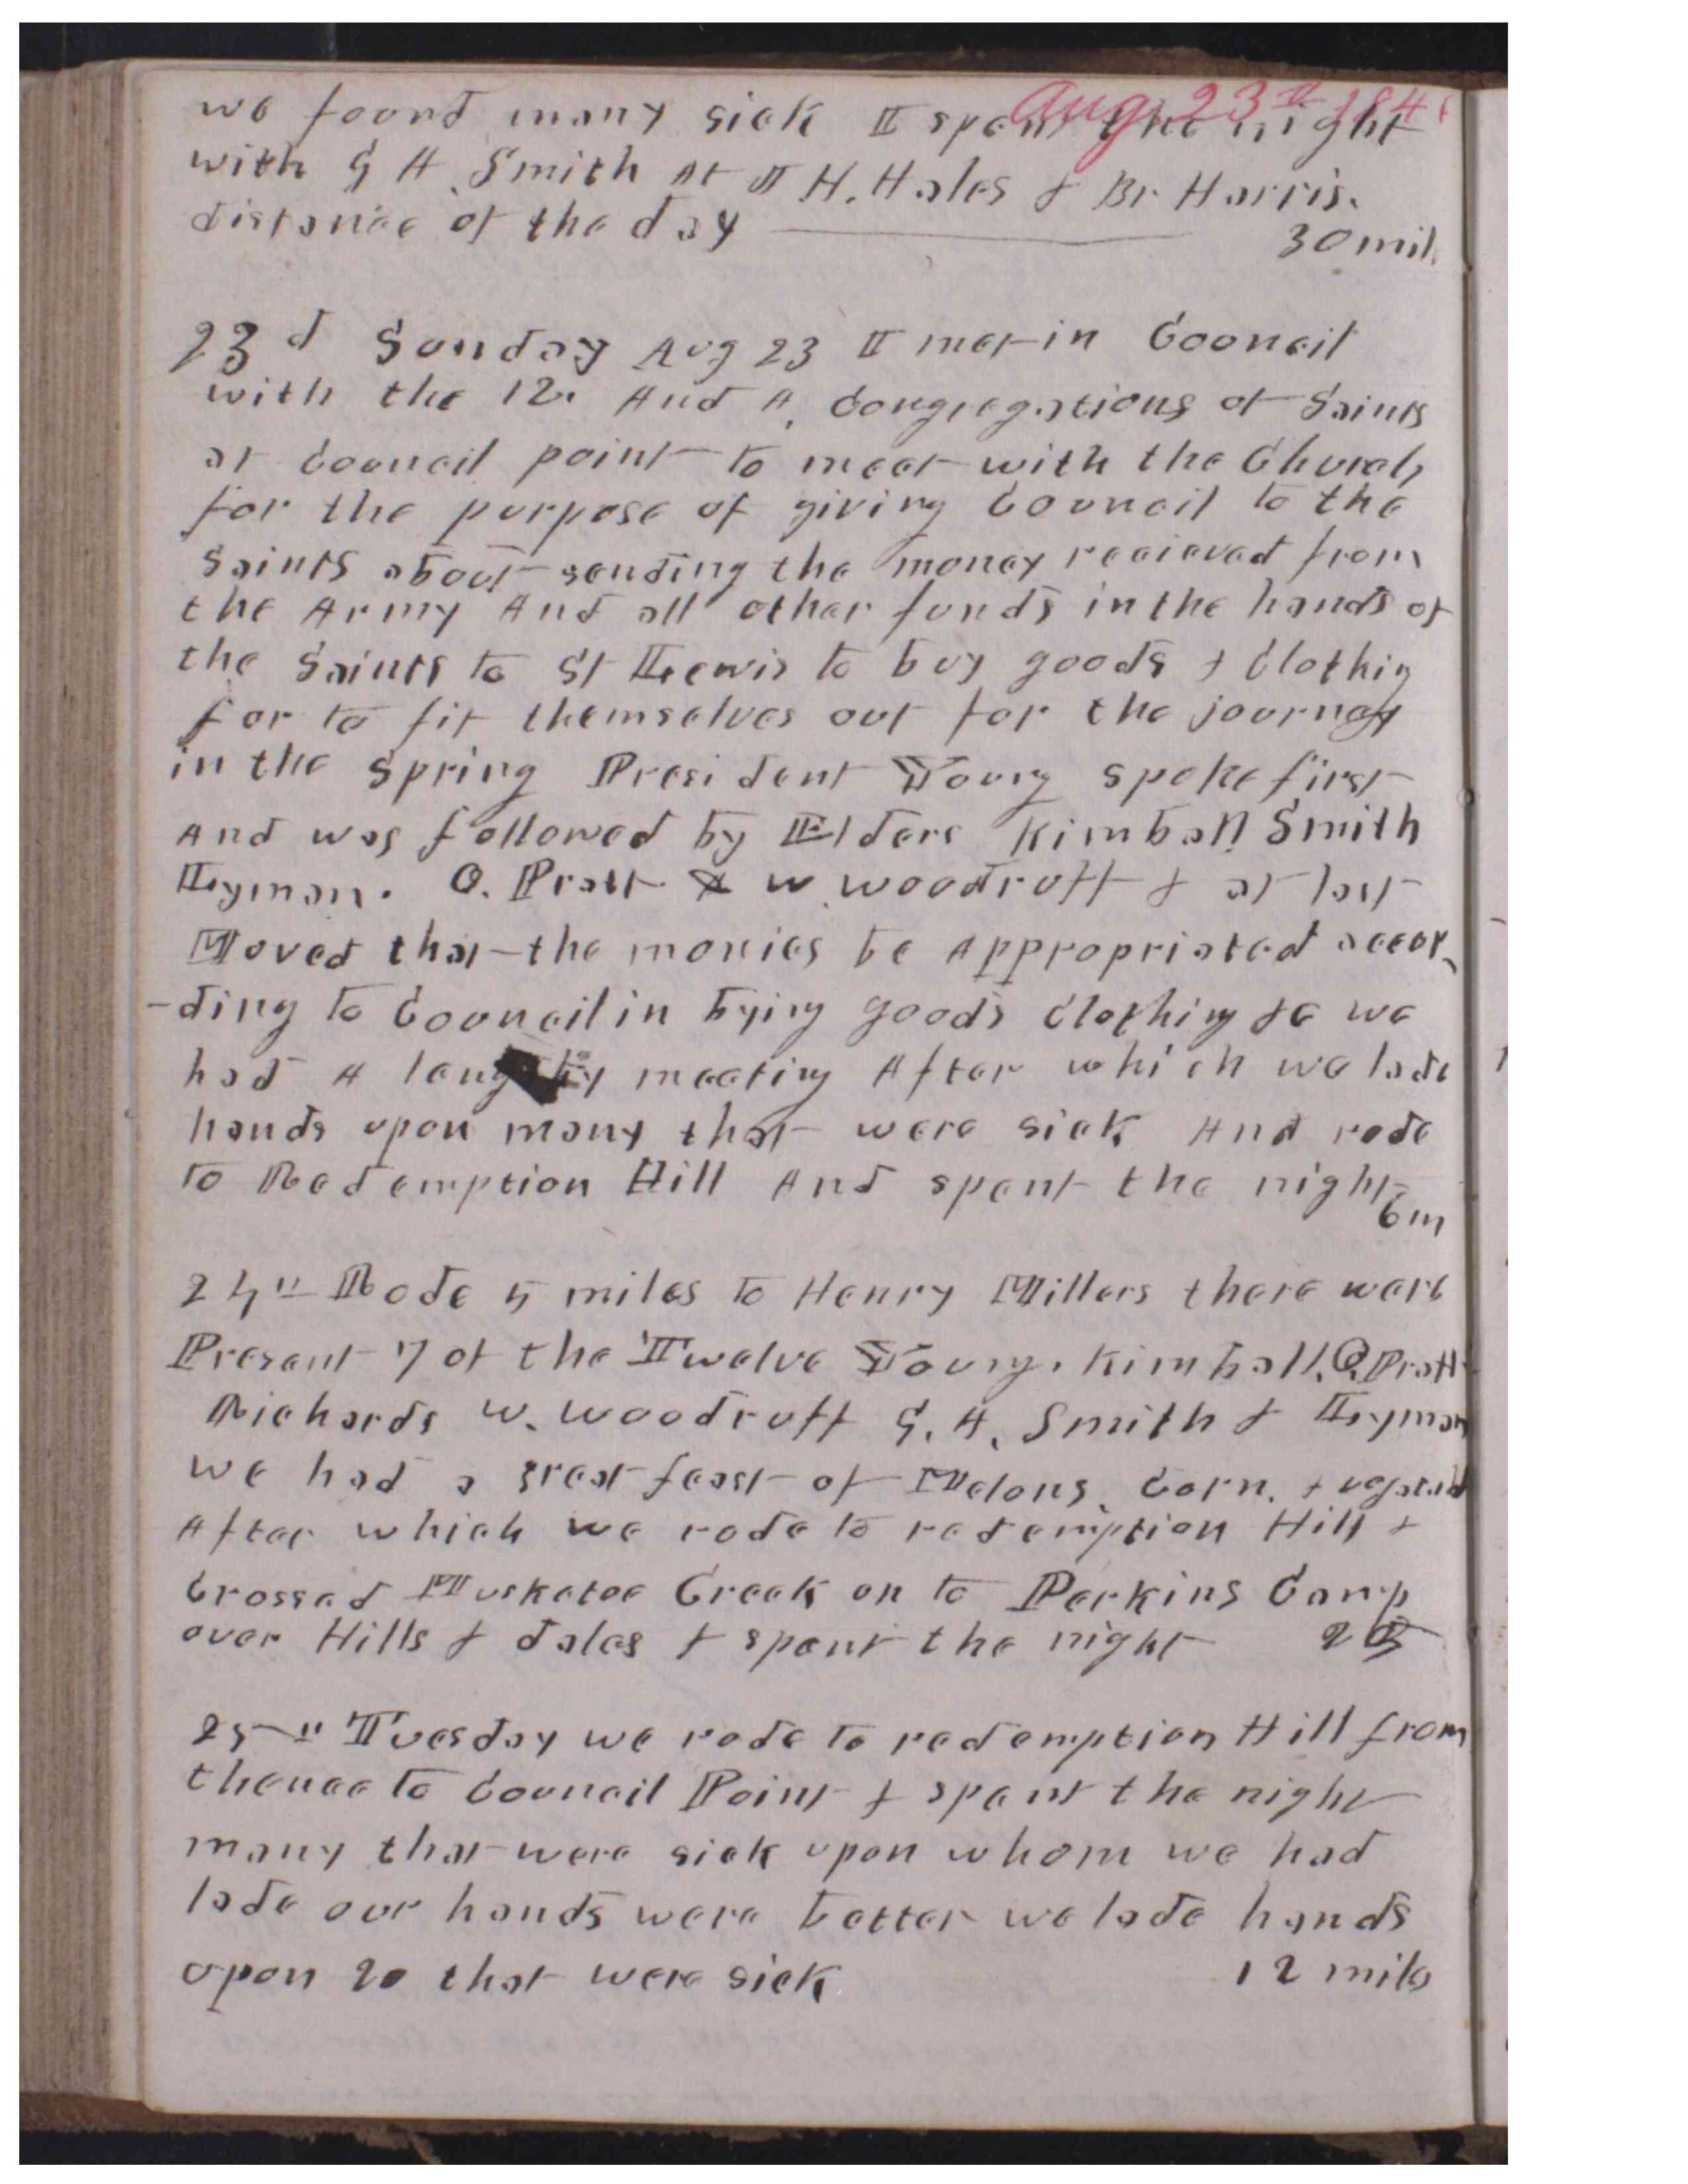 Aug 23rd 1846
we found many sick I spent the night
with G A Smith At J H. Hales & Br Harris.
distance of the day 30 mil
23d Sunday Aug 23 I met in Council
with the 12. And A, Congregations of Saints
at Council point to meet with the Church
for the purpose of giving Council to the
Saints about sending the money recieved from
the Army And all other funds in the hands of
the Saints to St Lewis to buy goods & Clothig
for to fit themselves out for the journey
in the Spring President Young spoke first
And was followed by Elders Kimball Smith
Lyman. O. Pratt & W. Woodruff & at last
Moved that the monies be Appropriated accor
-ding to Council in bying goods Clothing &c we
had A lengthy meeting After which we lade
hands upon many that were sick And rode
to Redemption Hill And spent the night
6 m
24th Rode 5 miles to Henry Millers there were
Present 7 of the Twelve Young, Kimball, O. Pratt
Richards W. Woodruff G. A. Smith & Lyman
we had a great feast of Melons, Corn, &
After which we rode to redemption Hill &
Crossed Musketoe Creek on to Perkins Camp
over Hills & dales & spent the night
25th Tuesday we rode to redemption Hill from
thence to Council Point & spent the night
many that were sick upon whom we had
lade our hands were better we lade hands
upon 20 that were sick 12 mils